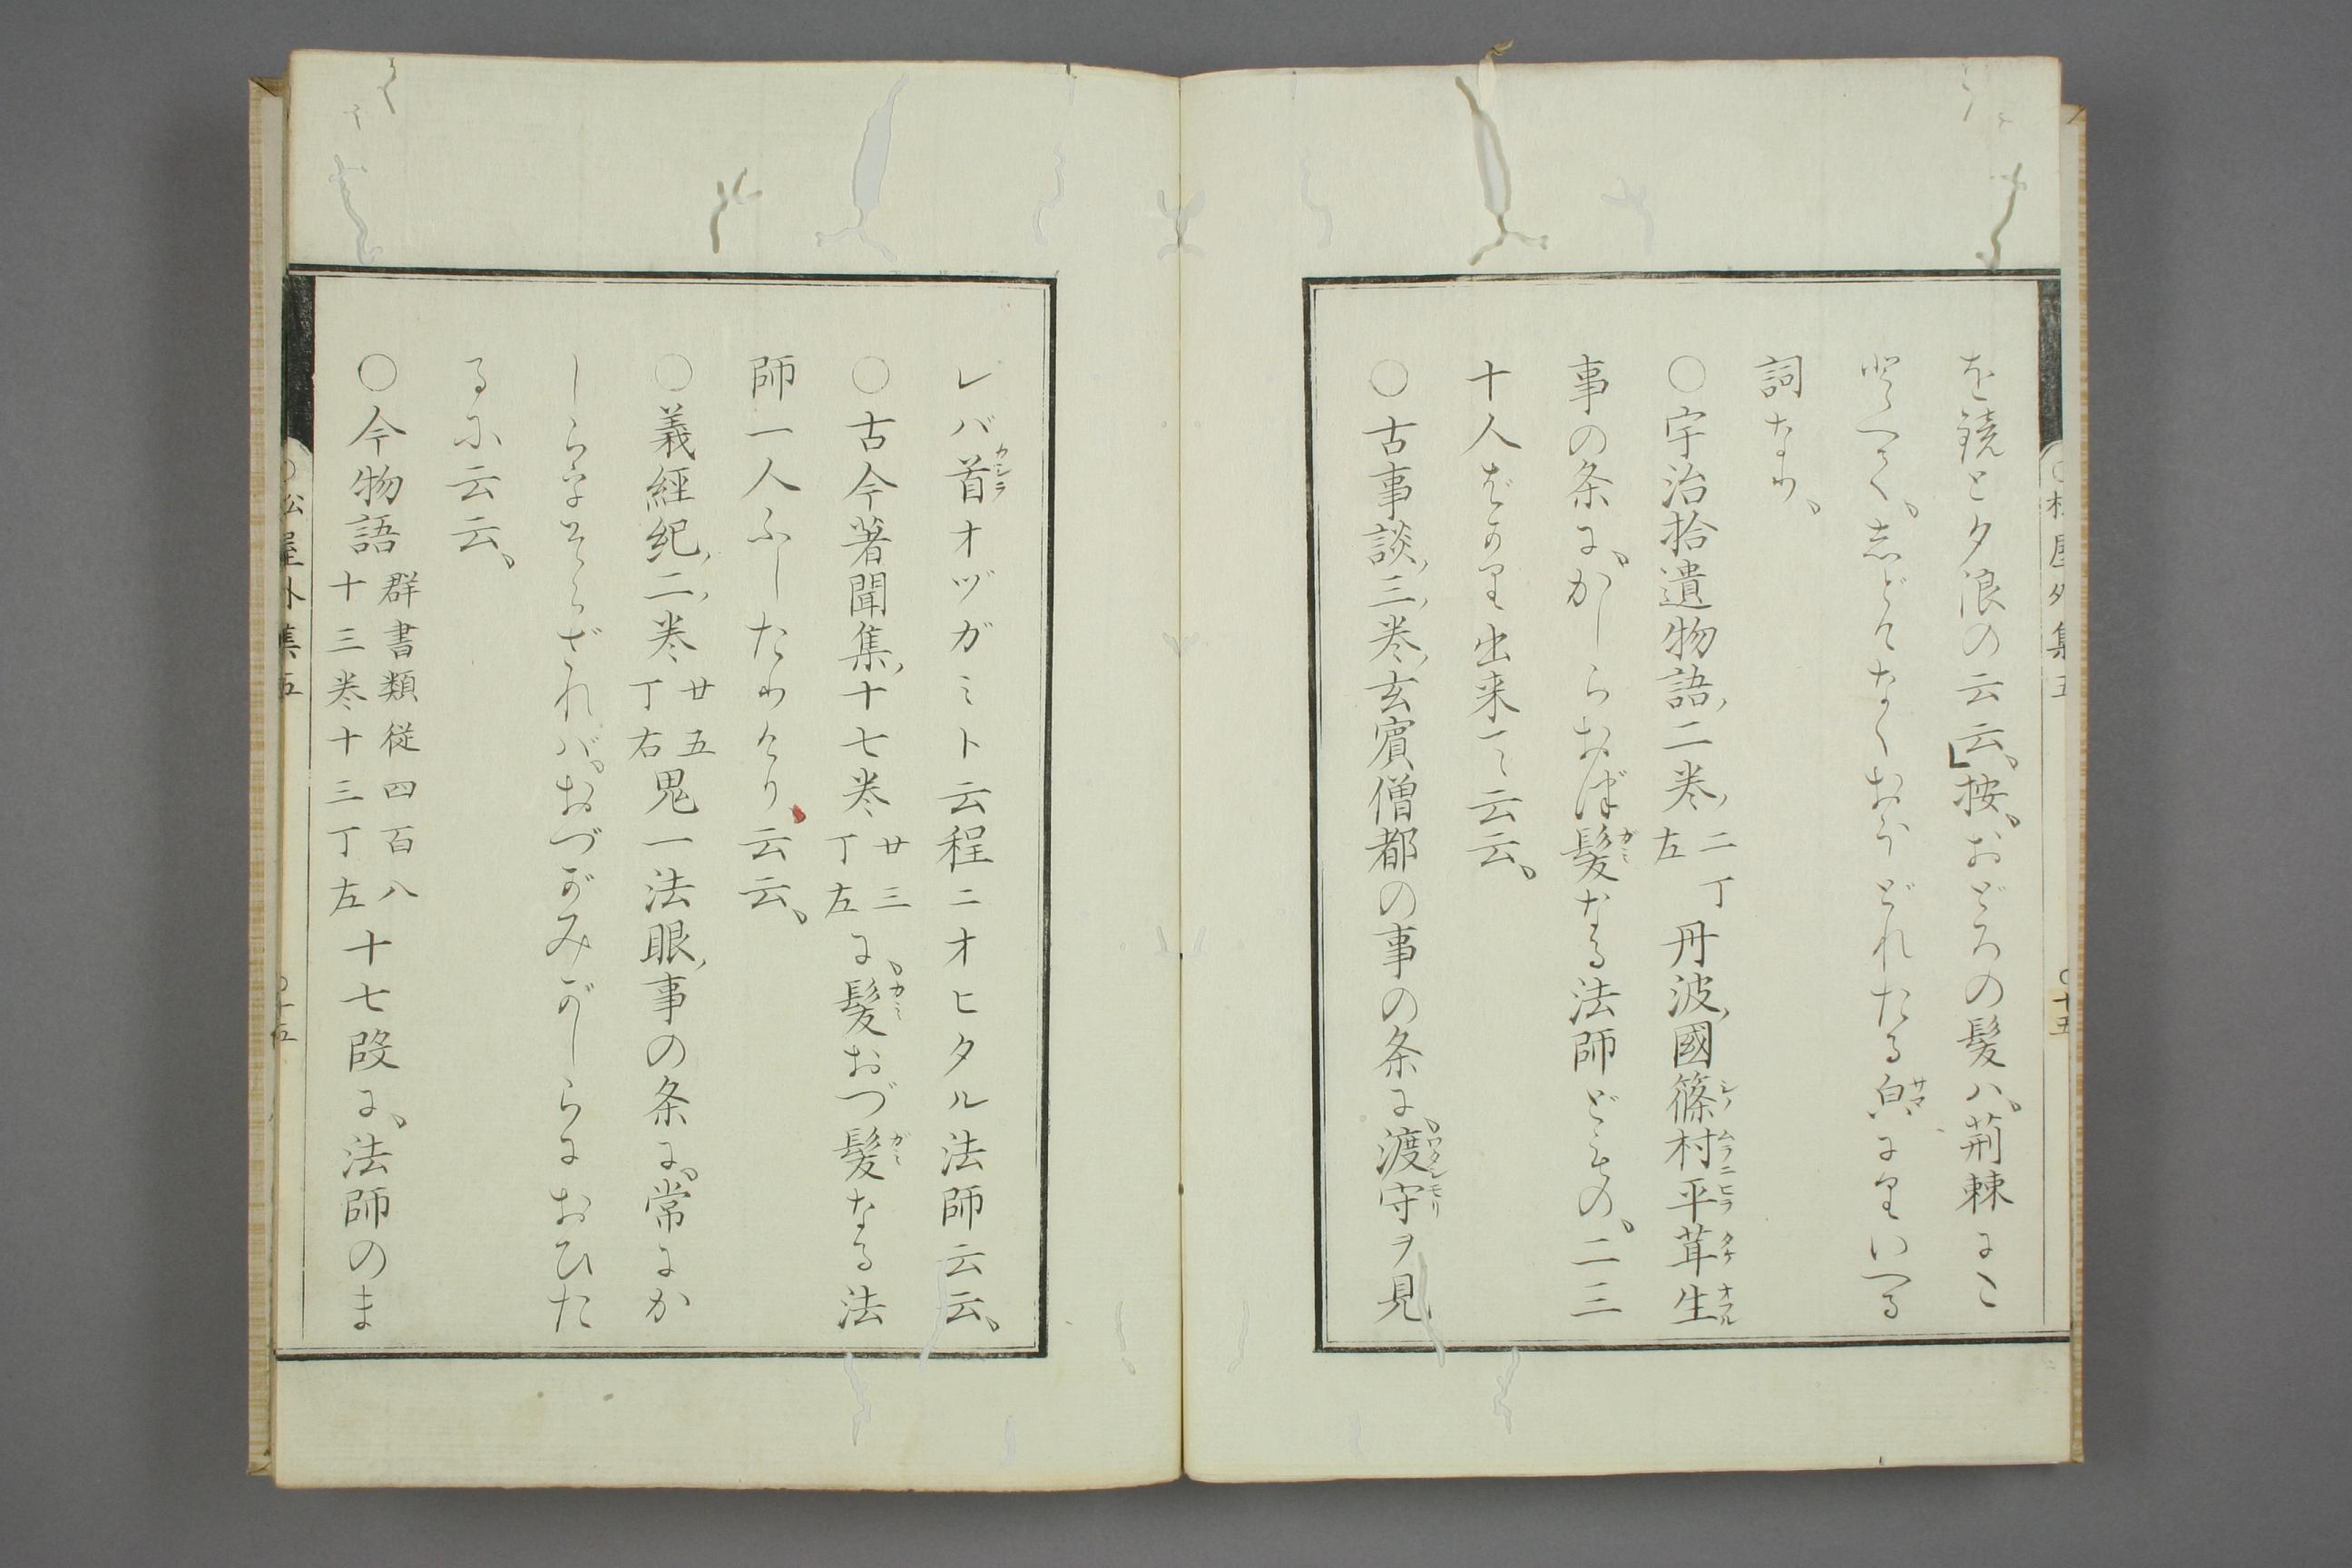 を鏡と夕浪の云云」按、おどろの髪ハ、荊棘にこ
とよせて、しどけなくおそどれたる㒵によりいへる
詞なり、
○宇治拾遺物語、二巻、二丁左丹波、國篠村平茸生
事の条に、かしらおほ髪なる法師どもの、二三
十人ばかり出来て云云、
○古事談、三、巻、玄賓僧都の事の条に、渡守ヲ見
レバ首オヅガミト云程ニオヒタル法師云云、
○古今著聞集、十七巻廿三丁左に、髪おづ髪なる法
師一人ふしたりけり云云、
○義經紀、二、巻廿五丁右鬼一法眼、事の条に、常にか
しら
ざれバ、おづがみがしらにおひた
るに云云、
○今物語群書類従四百八十三巻十三丁左十七段に、法師のま
松屋外集五
○十五